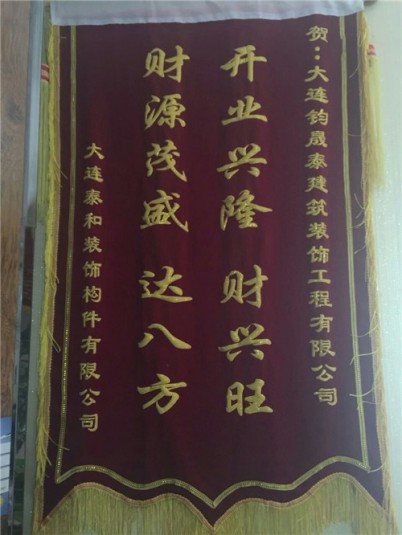 贺：大连钧晟泰建筑装饰工程有限公司
开业兴隆 财兴旺
财源茂盛 达八方
大连泰和装饰构件有限公司